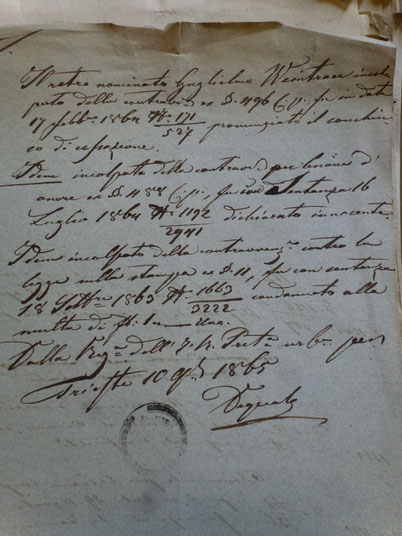 Il retro nominato Guglielmo Weintraus incol
pato della contravv. ex §. 496 C. p. fu in data
17 Febb. 1864 N. 171
527 pronunziato il conchiu
so di cessazione.
Idem incolpato della contravv. per lesione d'
onore ex § 488 C. p., fu con Sentenza 16
Luglio 1864 N. 1192 dichiarato innocente.
2941
Idem incolpato della contravvenz. contro la
legge sulla stampa ex §. 11, fu con sentenza
18 Sett.re 1863 N. 1663 condannato alla
3222
multa di f. 1
Dalla Reg.a dell' I. R. Pret. urb. pen.
Trieste 10 1865